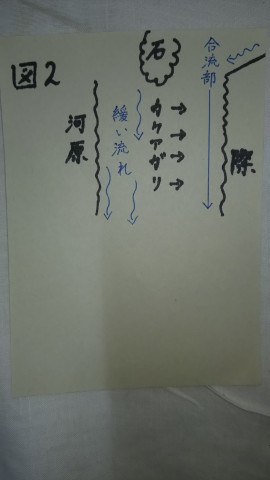 図2
石
合流部
河原
緩い流れ
カケアガリ
際